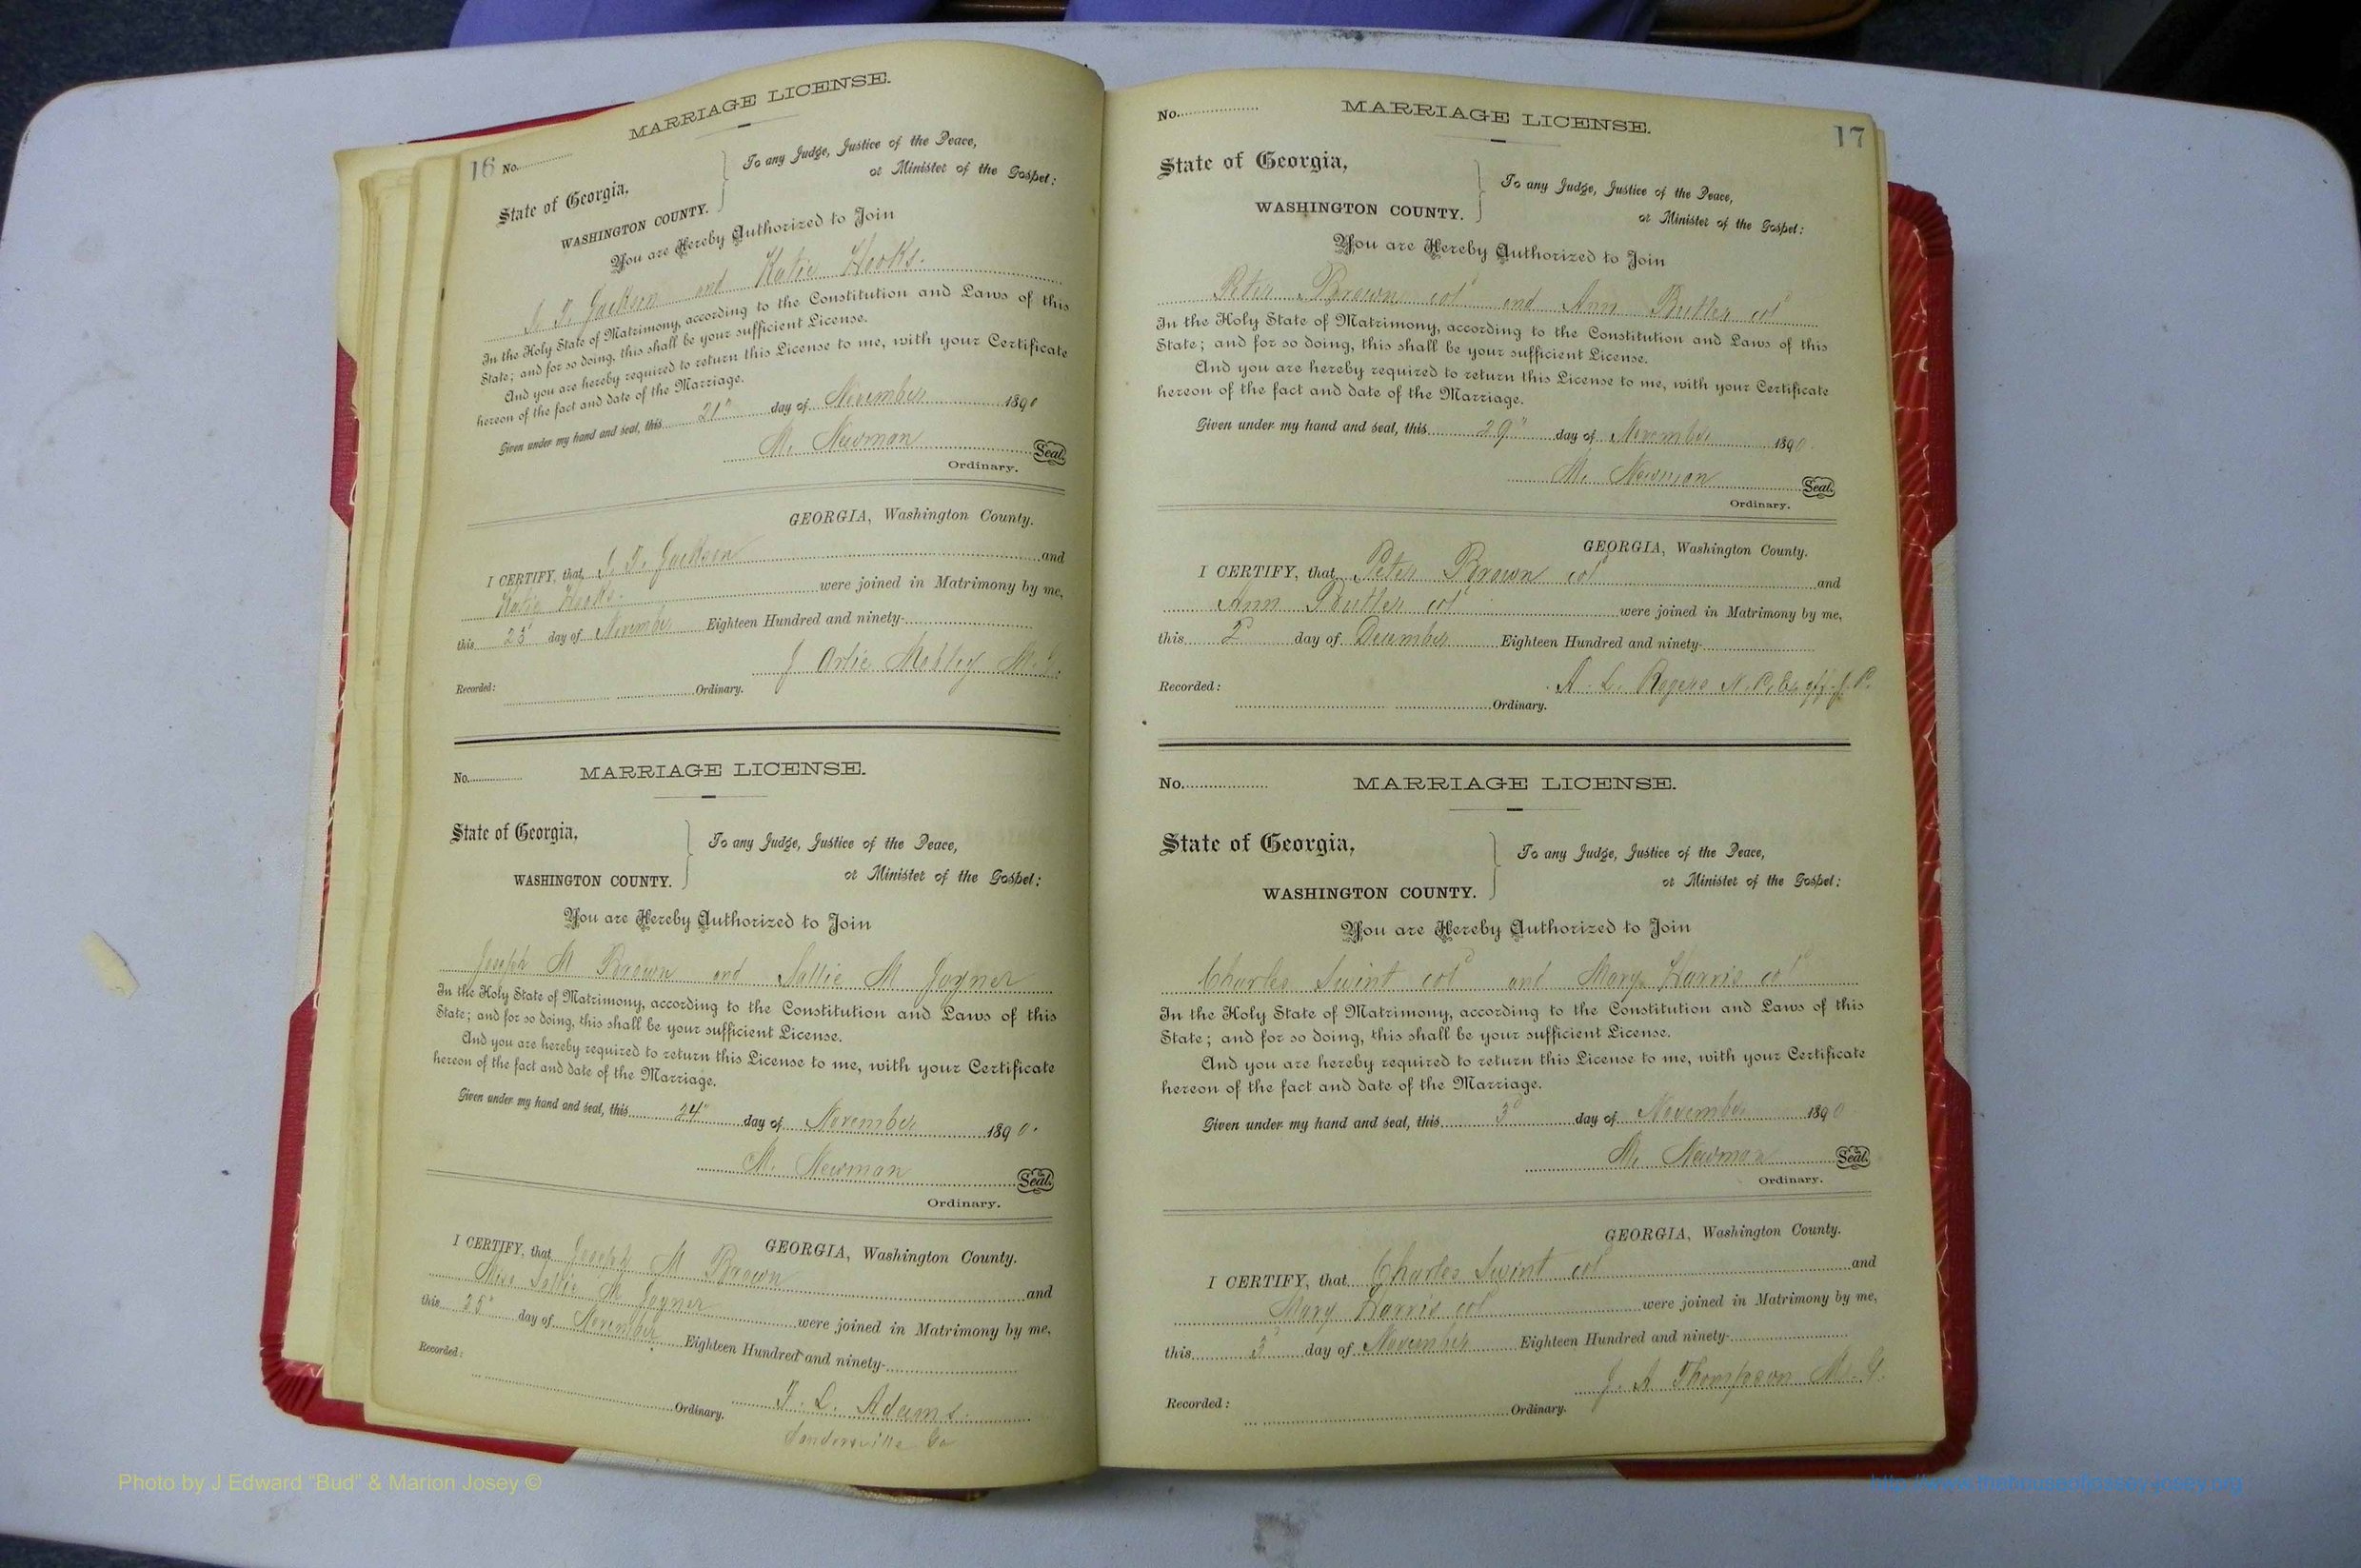 16 No.
MARRIAGE LICENSE.
State of Georgia,
WASHINGTON COUNTY.
To any Judge, Justice of the Peace,
or Minister of the Gospel:
You are Hereby Authorized to Join
T. Jackson and Katie Hooks.
In the Holy State of Matrimony, according to the Constitution and Laws of this
State; and for so doing, this shall be your sufficient License.
And you are hereby required to return this License to me, with your Certificate
hereon of the fact and date of the Marriage.
Given under my hand and seal, this 21" day of November 1890
M. Newman Seal.
Ordinary.
GEORGIA, Washington County.
I CERTIFY, that T. Jackson and
Katie Hooks. were joined in Matrimony by me,
this 23" day of November Eighteen Hundred and ninety-
J Arlie Mobley
Recorded: Ordinary.
No.
MARRIAGE LICENSE.
State of Georgia,
WASHINGTON COUNTY.
To any Judge, Justice of the Peace,
or Minister of the Gospel:
You are Hereby Authorized to Join
Joseph M Brown and Sallie M Joyner
In the Holy State of Matrimony, according to the Constitution and Laws of this
State; and for so doing, this shall be your sufficient License.
And you are hereby required to return this License to me, with your Certificate
hereon of the fact and date of the Marriage.
Given under my hand and seal, this 24" day of November 1890.
M. Newman Seal.
Ordinary.
GEORGIA, Washington County.
I CERTIFY, that Joseph M Brown and
Miss Sallie M Joyner were joined in Matrimony by me,
this 25" day of November Eighteen Hundred and ninety-
Recorded: Ordinary.
F. L. Adams.
Sandersville Ga
No.
MARRIAGE LICENSE.
17
State of Georgia,
WASHINGTON COUNTY.
To any Judge, Justice of the Peace,
or Minister of the Gospel:
You are Hereby Authorized to Join
Peter Brown cold and Ann Butler cold
In the Holy State of Matrimony, according to the Constitution and Laws of this
State; and for so doing, this shall be your sufficient License.
And you are hereby required to return this License to me, with your Certificate
hereon of the fact and date of the Marriage.
Given under my hand and seal, this 29" day of November 1890.
M. Newman Seal.
Ordinary.
GEORGIA, Washington County.
I CERTIFY, that Peter Brown cold and
Ann Butler cold were joined in Matrimony by me,
this 2d day of December Eighteen Hundred and ninety-
A. L. Rogers N.P. Ex off. J.P.
Recorded: Ordinary.
No.
MARRIAGE LICENSE.
State of Georgia,
WASHINGTON COUNTY.
To any Judge, Justice of the Peace,
or Minister of the Gospel:
You are Hereby Authorized to Join
Charles Swint cold and Mary Harris cold
In the Holy State of Matrimony, according to the Constitution and Laws of this
State; and for so doing, this shall be your sufficient License.
And you are hereby required to return this License to me, with your Certificate
hereon of the fact and date of the Marriage.
Given under my hand and seal, this 3d day of November 1890
M. Newman Seal.
Ordinary.
GEORGIA, Washington County.
I CERTIFY, that Charles Swint cold and
Mary Harris cold were joined in Matrimony by me,
this 3d day of November Eighteen Hundred and ninety-
J. A Thompson M. G.
Recorded: Ordinary.
Photo by J Edward "Bud" & Marion Josey ©